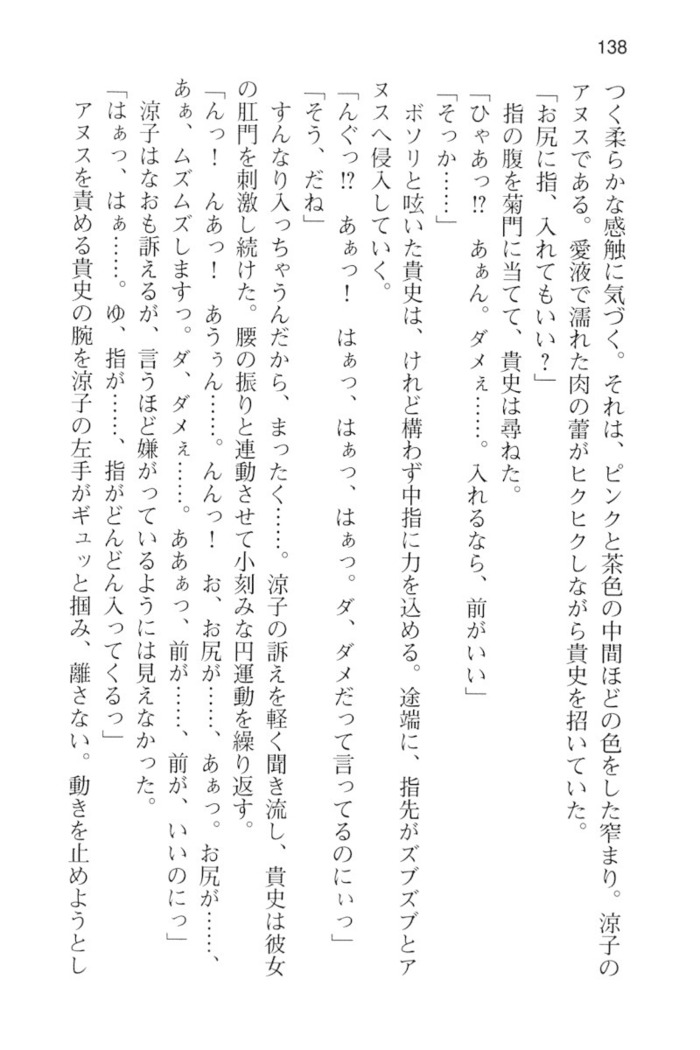 138
つく柔らかな感触に気づく。それは、ピンクと茶色の中間ほどの色をした窄まり。涼子の
アヌスである。愛液で濡れた肉の蕾がヒクヒクしながら貴史を招いていた。
「お尻に指、入れてもいい？」
指の腹を菊門に当てて、貴史は尋ねた。
「ひゃあっ!?　あぁん。ダメぇ……。入れるなら、前がいい」
「そっか……」
ボソリと呟いた貴史は、けれど構わず中指に力を込める。途端に、指先がズブズブとア
ヌスへ侵入していく。
「んぐっ!?　あぁっ！　はぁっ、はぁっ、はぁっ。ダ、ダメだって言ってるのにぃっ」
「そう、だね」
すんなり入っちゃうんだから、まったく……。涼子の訴えを軽く聞き流し、貴史は彼女
の肛門を刺激し続けた。腰の振りと連動させて小刻みな円運動を繰り返す。
「んっ！　んあっ！　あうぅん……。んんっ！　お、お尻が……、あぁっ。お尻が……、
あぁ、ムズムズしますっ。ダ、ダメぇ……。ああぁっ、前が……、前が、いいのにっ」
涼子はなおも訴えるが、言うほど嫌がっているようには見えなかった。
「はぁっ、はぁ……。ゆ、指が……、指がどんどん入ってくるっ」
アヌスを責める貴史の腕を涼子の左手がギュッと掴み、離さない。動きを止めようとし